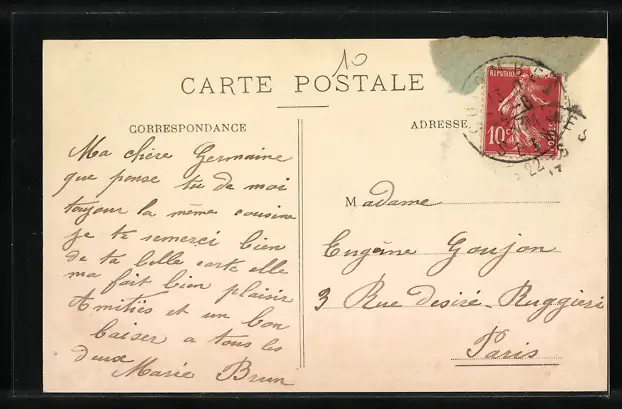 10
CARTE POSTALE
CORRESPONDANCE
ADRESSE
Ma chère Germaine
que pense tu de moi
toujour la même cousine
je te remerci bien
de ta belle carte elle
ma fait bien plaisir
Amitiés et un bon
baiser a tous les
deux
Marie Brun
Madame
Eugène Goujon
3 Rue desiré-Ruggieri
Paris
REPUBLIQUE
10c
POSTES
22